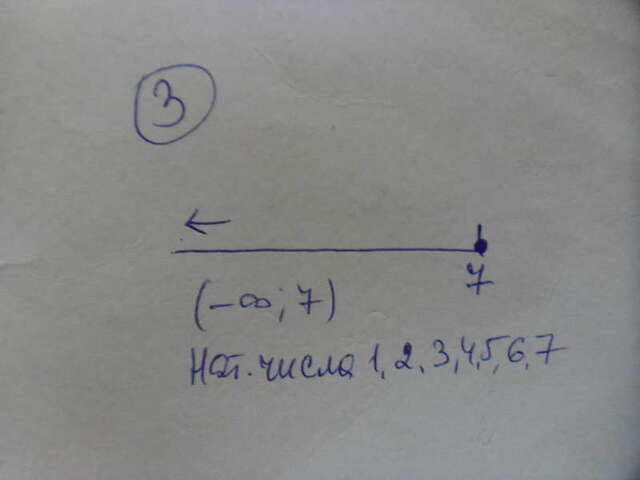 3
7
(-∞; 7)
Нат. числа 1, 2, 3, 4, 5, 6, 7